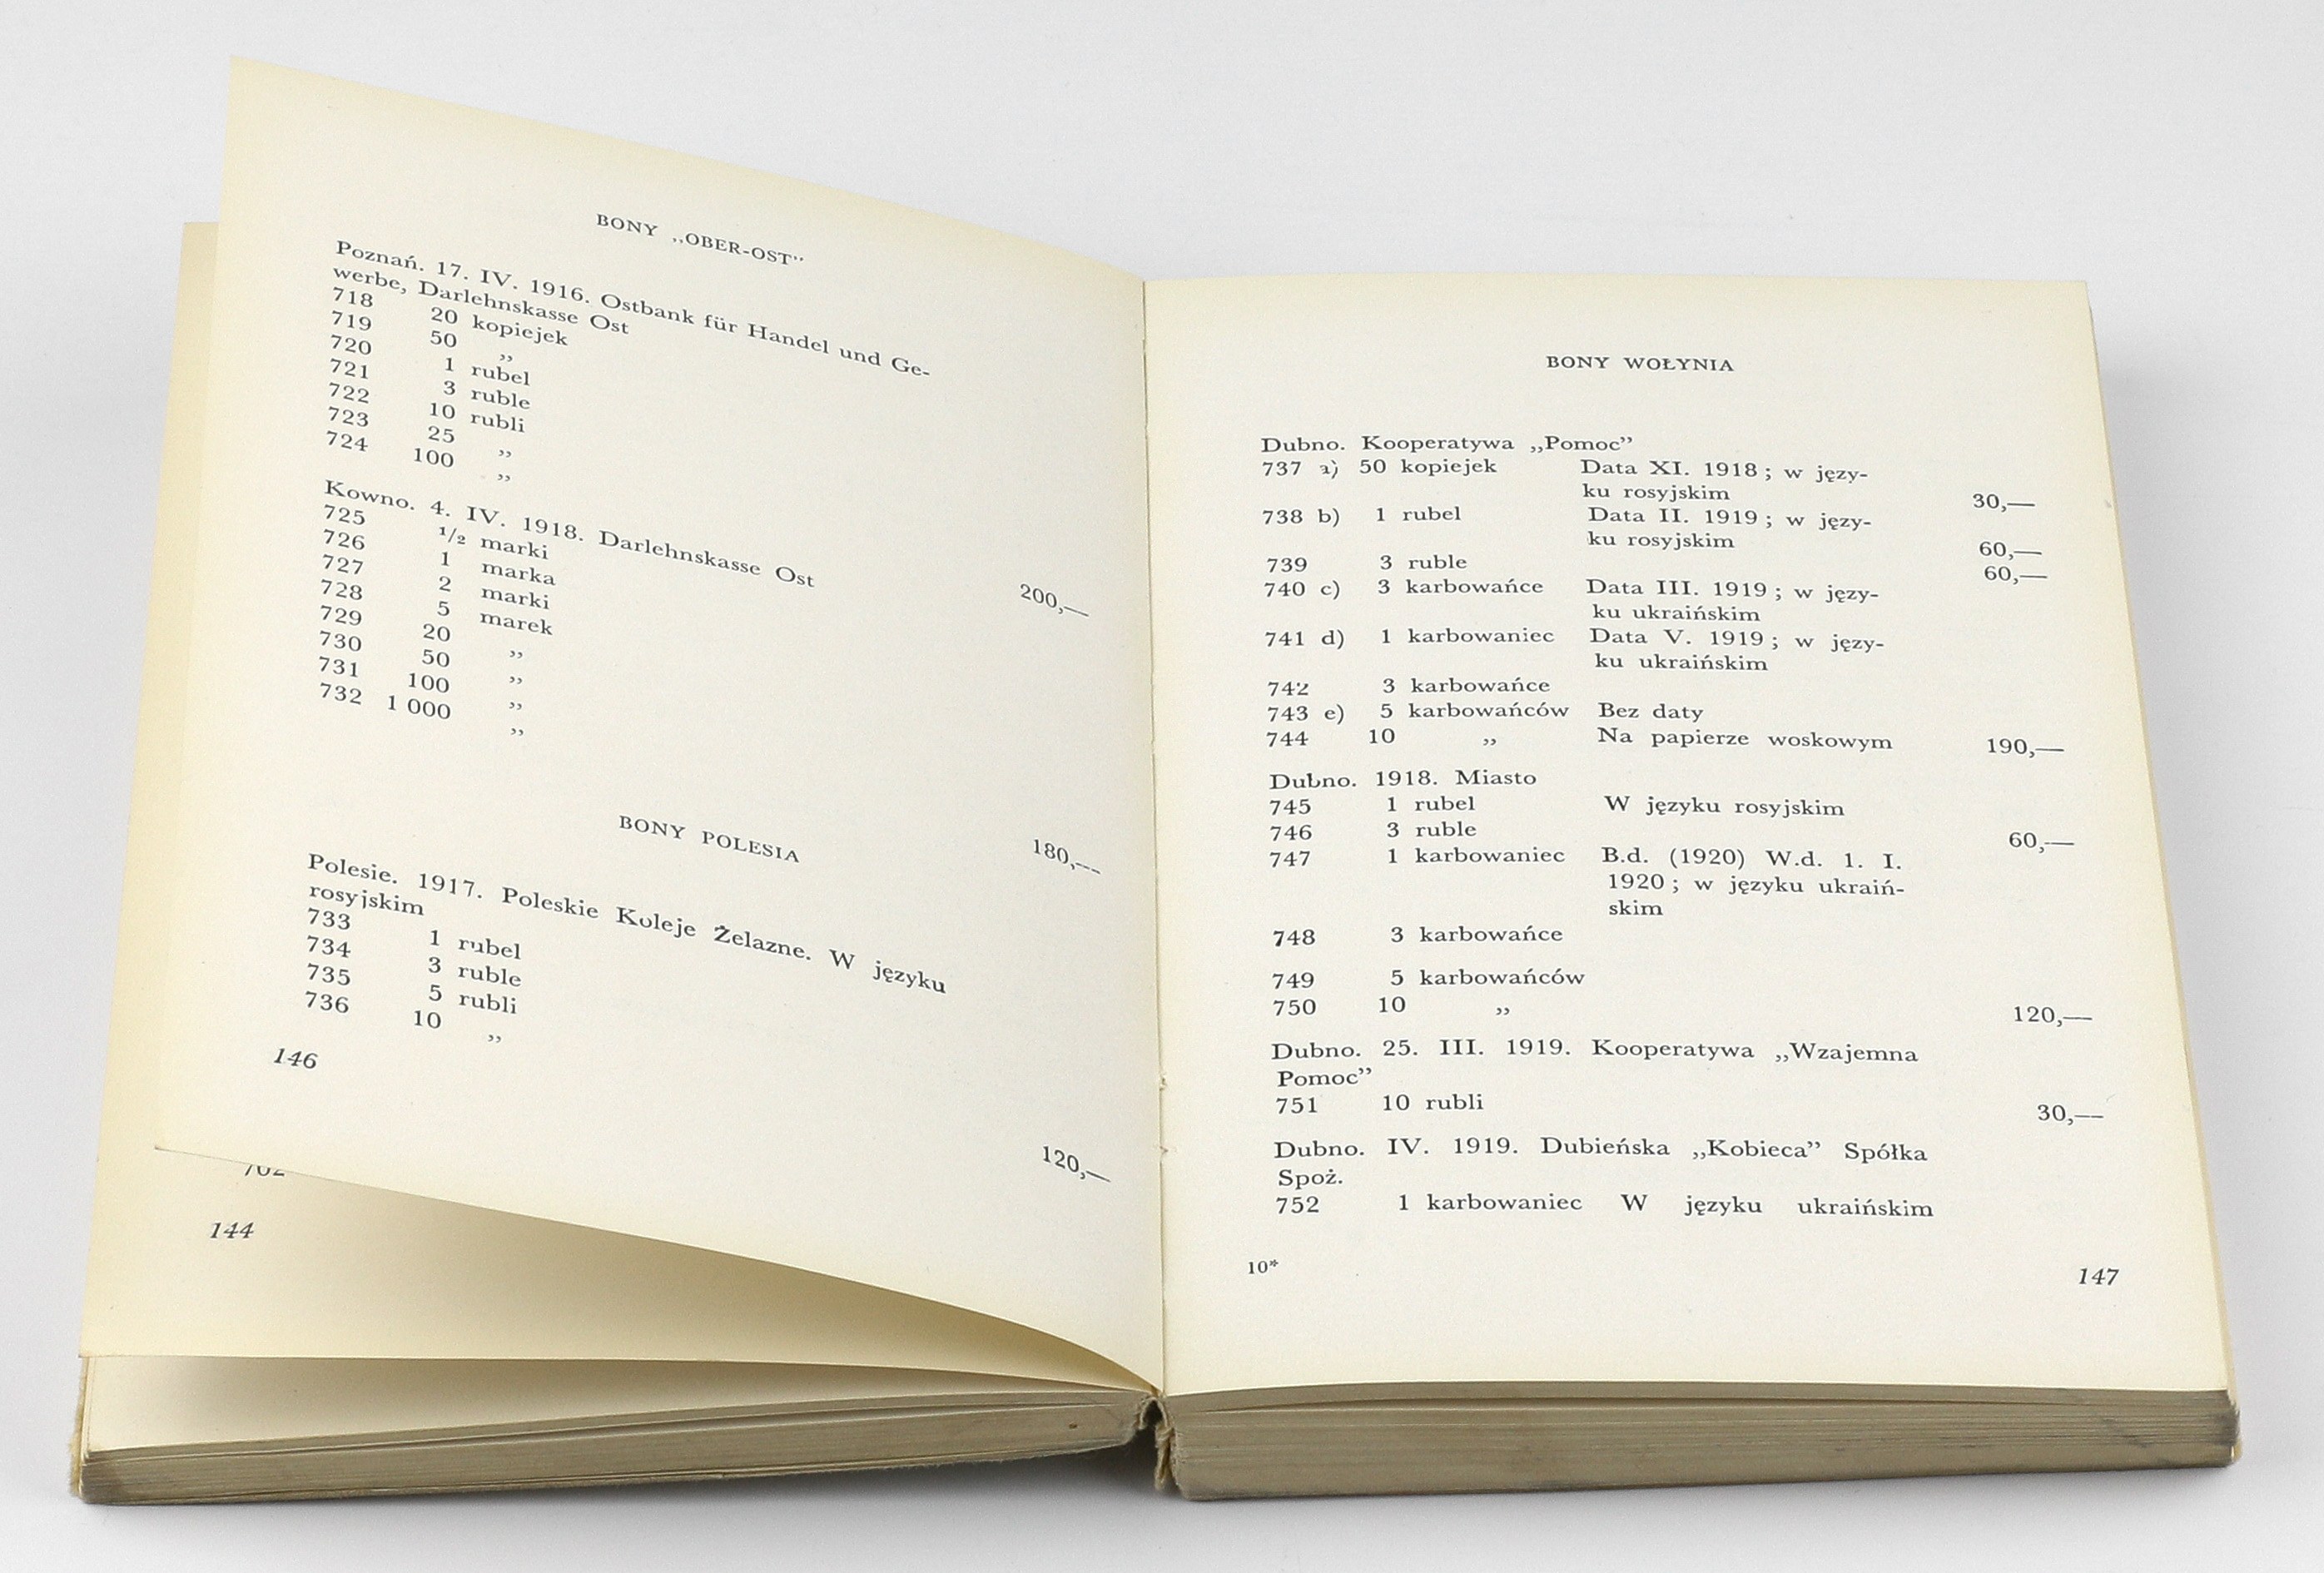 BONY „OBER-OST”
Poznań. 17. IV. 1916. Ostbank für Handel und Ge-
werbe, Darlehnskasse Ost
718 20 kopiejek
719 50 „
720 1 rubel
721 3 ruble
722 10 rubli
723 25 „
724 100 „ 200,—
Kowno. 4. IV. 1918. Darlehnskasse Ost
725 1/2 marki
726 1 marka
727 2 marki
728 5 marek
729 20 „
730 50 „
731 100 „
732 1 000 „ 180,—
BONY POLESIA
Polesie. 1917. Poleskie Koleje Żelazne. W języku
rosyjskim
733 1 rubel
734 3 ruble
735 5 rubli
736 10 „ 120,—
146
702
144
BONY WOŁYNIA
Dubno. Kooperatywa „Pomoc”
737 a) 50 kopiejek Data XI. 1918; w języ-
ku rosyjskim 30,—
738 b) 1 rubel Data II. 1919; w języ-
ku rosyjskim 60,—
739 3 ruble 60,—
740 c) 3 karbowańce Data III. 1919; w języ-
ku ukraińskim
741 d) 1 karbowaniec Data V. 1919; w języ-
ku ukraińskim
742 3 karbowańce
743 e) 5 karbowańców Bez daty
744 10 „ Na papierze woskowym 190,—
Dubno. 1918. Miasto
745 1 rubel W języku rosyjskim
746 3 ruble 60,—
747 1 karbowaniec B.d. (1920) W.d. 1. I.
1920; w języku ukraiń-
skim
748 3 karbowańce
749 5 karbowańców
750 10 „ 120,—
Dubno. 25. III. 1919. Kooperatywa „Wzajemna
Pomoc”
751 10 rubli 30,—
Dubno. IV. 1919. Dubieńska „Kobieca” Spółka
Spoż.
752 1 karbowaniec W języku ukraińskim
10*
147